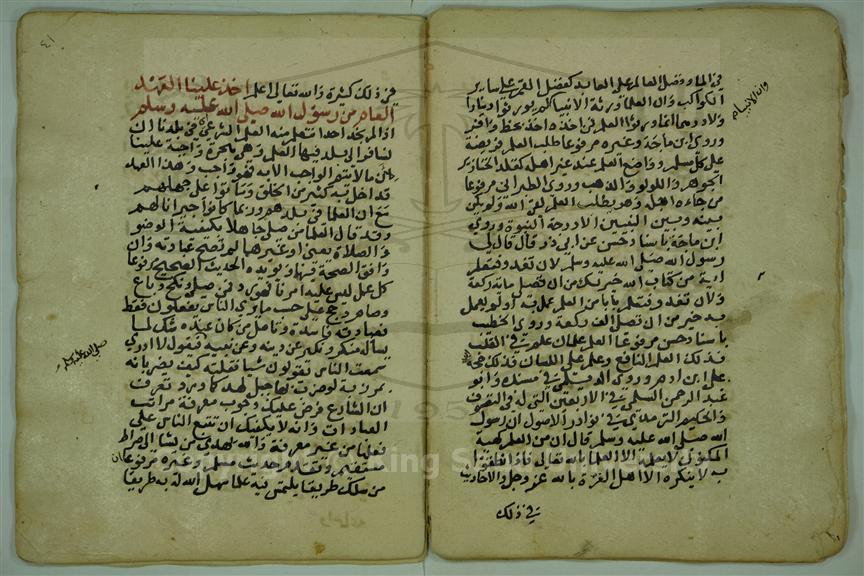 في الماء وفضل العالم على العابد كفضل القمر على ساير
الكواكب وان العلما ورثة الانبيا لم يورثوا دينارا
ولا درهما انما ورثوا العلم فمن اخذه اخذ بحظ وافر
وروى ابن ماجة وغيره مرفوعا طلب العلم فريضة
على كل مسلم وواضع العلم عند غير اهله كمقلد الخنازير
الجوهر واللولو والذهب وروى الطبراني مرفوعا
من جاءه اجله وهو يطلب العلم لقي الله ولم يكن
بينه وبين النبيين الا درجة النبوة وروى
ابن ماجة باسناد حسن عن ابي ذر قال قال لي
رسول الله صلى الله عليه وسلم لان تغدو فتعلم
اية من كتاب الله خير لك من ان تصلي ماية ركعة
ولان تغدو فتعلم بابا من العلم عمل به او لم يعمل
به خير من ان تصلي الف ركعة وروى الخطيب
باسناد حسن مرفوعا العلم علمان علم في القلب
فذلك العلم النافع وعلم على اللسان فذلك حجة
على ابن ادم وروى الديلمي في مسنده وابو
عبد الرحمن السلمي في الاربعين التي له في التصوف
والحكيم الترمذي في نوادر الاصول ان رسول
الله صلى الله عليه وسلم قال ان من العلم كهيئة
المكنون لا يعلمه الا العلما بالله تعالى فاذا نطقوا
به لا ينكره الا اهل الغرة بالله عز وجل والاحاديث
في ذلك
وان الانبياء
٤١
في ذلك كثيرة والله تعالى اعلم اخذ علينا العهد
العام من رسول الله صلى الله عليه وسلم
اذا لم نجد احدا نتعلم منه العلم الشرعي في بلدنا ان
نسافر الى بلد فيها العلم وهي هجرة واجبة علينا
ما لا يتم الواجب الا به فهو واجب وهذا العهد
قد اخل به كثير من الخلق وماتوا على جهلهم
مع ان العلما في بلدهم وربما كانوا جيرانا لهم
وقد قال العلما من صلى جاهلا بكيفية الوضو
والصلاة يعني او غيرهما لم تصح عبادته وان
وافق الصحة فيها ويويده الحديث الصحيح مرفوعا
كل عمل ليس عليه امرنا فهو رد فمن صلى ونكح وباع
وصام وحج على حسب ما يرى الناس يفعلون فقط
فعبادته فاسدة وتامل من كان عنده شك لما
يساله منكر ونكير عن دينه وعن نبيه فيقول لا ادري
سمعت الناس يقولون شيا فقلته كيف يضربانه
بمرزبة لو ضرب بها جبل لهد كما ورد تعرف
ان الشارع فرض عليك وجوب معرفة مراتب
العبادات وانه لا يكفيك ان تتبع الناس على
فعلها من غير معرفة والله يهدي من يشا الى صراط
مستقيم وتقدم حديث مسلم وغيره مرفوعا
من سلك طريقا يلتمس فيه علما سهل الله له به طريقا
صلى الله عليه وسلم